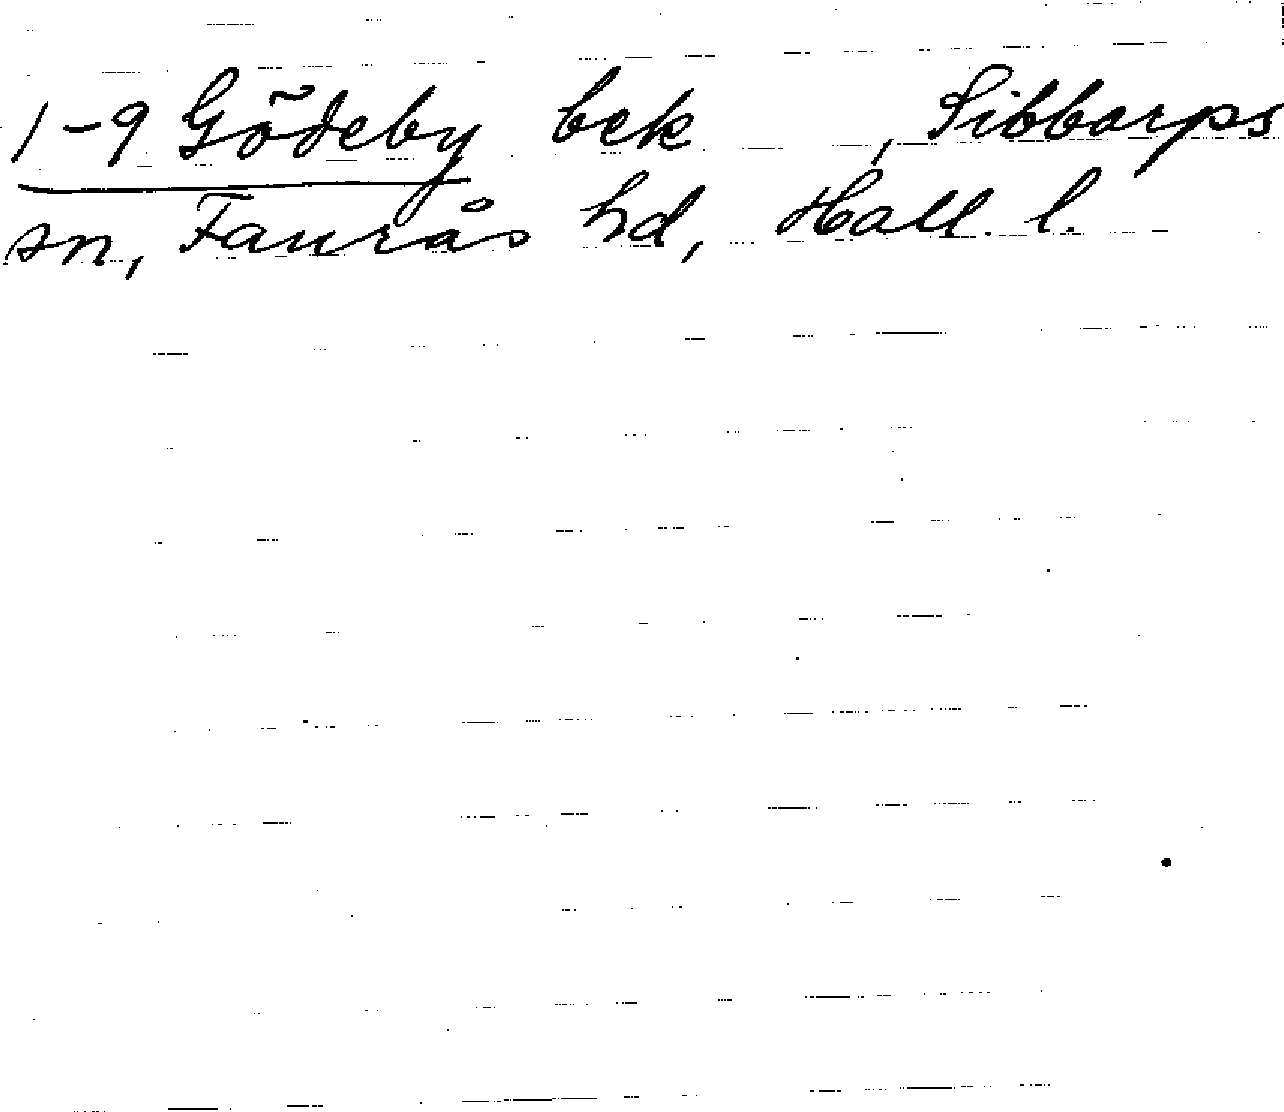 1-9 Gödeby bek , Sibbarps
sn, Faurås hd, Hall. l.